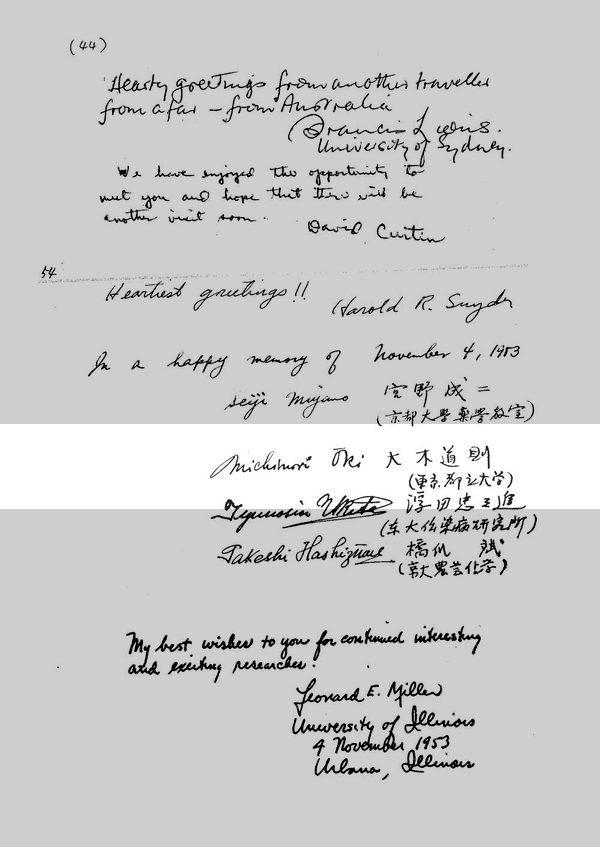 (44)
Hearty greetings from another traveller
from afar – from Australia
Francis Lions.
University of Sydney.
We have enjoyed the opportunity to
meet you and hope that there will be
another visit soon.
David Curtin
54
Heartiest greetings!!
Harold R. Snyder
In a happy memory of November 4, 1953
Seiji Miyano 宮野成二
(京都大學藥学教室)
Michinori Ōki 大木道則
(東京都立大学)
浮田忠之進
(东大伝染病研究所)
Takeshi Hashizume 橋爪 斌
(京大農芸化学)
My best wishes to you for continued interesting
and exciting researches.
Leonard E. Miller
University of Illinois
4 November 1953
Urbana, Illinois